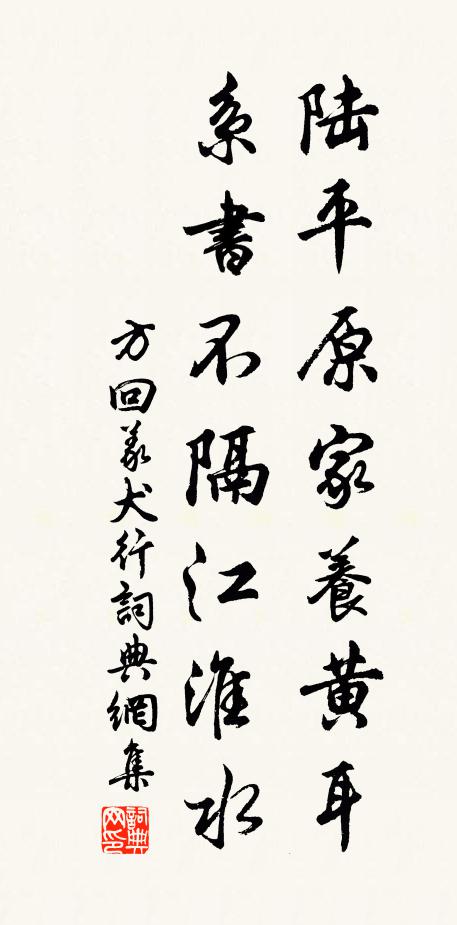 陆平原家養黄耳
系書不隔江淮水
方回義犬行詞典網集
詞典网印